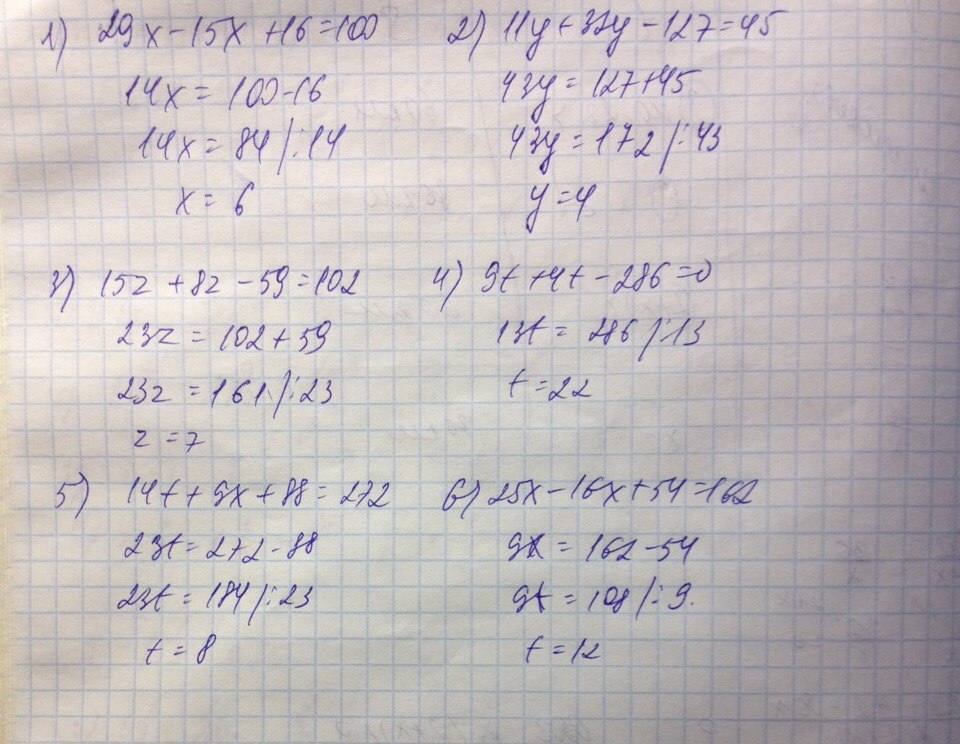 1) 29x-15x+16=100
14x=100-16
14x=84 /:14
x=6
2) 11y+32y-127=45
43y=127+45
43y=172 /:43
y=4
3) 15z+8z-59=102
23z=102+59
23z=161 /:23
z=7
4) 9t+4t-286=0
13t=286 /:13
t=22
5) 14t+9x+88=272
23t=272-88
23t=184 /:23
t=8
6) 25x-16x+54=162
9x=162-54
9t=108 /:9.
t=12